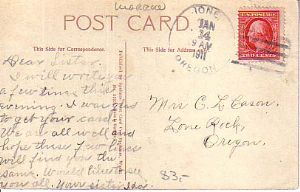 POST CARD.
This Side for Correspondence.
This Side for Address
IONE
JAN
24
9 AM
1911
OREGON
Dear Sister.
I will write you
a few lines this
evening. I was glad
to get your card.
We are all well and
hope these few lines
will find you the
same. Would like to see
you all. Your sister Ida.
Mrs C. L. Eason.
Lone Rock,
Oregon.
83,-